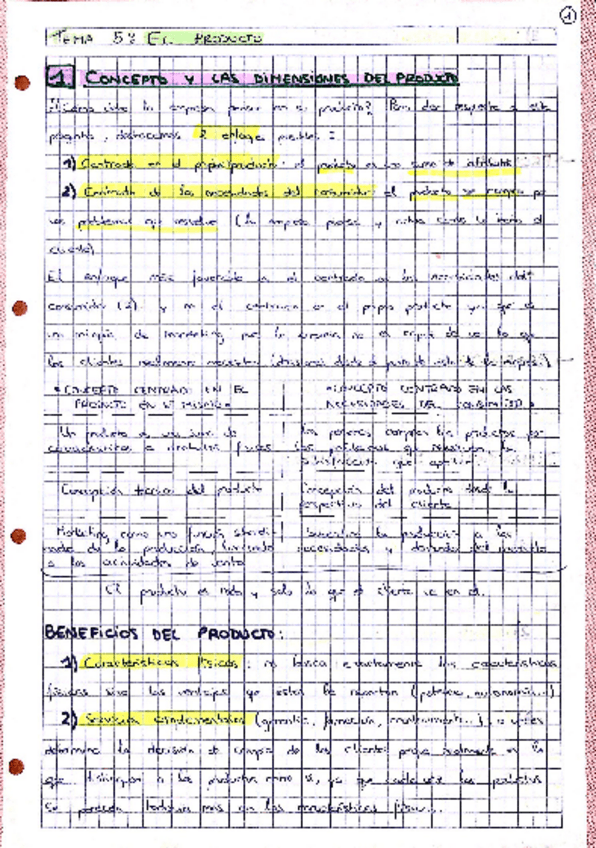 1
TEMA 5: EL PRODUCTO
1 CONCEPTO Y LAS DIMENSIONES DEL PRODUCTO
¿Cómo debe la empresa pensar en su producto? Para dar respuesta a esta
pregunta, 2 enfoques posibles:
1) Centrado en el propio producto: el producto es una suma de atributos
2) Centrado de las necesidades del consumidor: el producto se compra por
los problemas que resuelve (la empresa piensa y actúa como lo haría el
cliente)
El enfoque más favorable es el centrado en las necesidades del
consumidor (2) y no el centrado en el propio producto ya que es
una miopía de marketing por la empresa no es capaz de ver lo que
los clientes realmente necesitan
• CONCEPTO CENTRADO EN EL
PRODUCTO EN SÍ MISMO •
• CONCEPTO CENTRADO EN LAS
NECESIDADES DEL CONSUMIDOR •
Un producto es una suma de
características o atributos físicos
Las personas compran los productos por
los problemas que resuelven, la
satisfacción que aportan
Concepción técnica del producto
Concepción del producto desde la
perspectiva del cliente
Marketing como una función
de la producción,
a las actividades de venta
la producción a las
necesidades y demanda del mercado
El producto es todo y solo lo que el cliente ve en él.
BENEFICIOS DEL PRODUCTO:
1) Características físicas: no busca exactamente las características
físicas sino las ventajas que estas le reportan (potencia, autonomía...)
2) Servicios complementarios (garantía, formación, mantenimiento...), a veces
determina la decisión de compra de los clientes
que distinguen a los productos como sí, ya que cada vez los productos
se parecen todavía más en las características físicas.